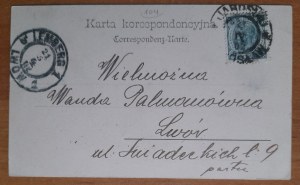 Karta korespondencyjna
Correspondenz-Karte.
LEMBERG
LWÓW
JAROSŁAW
Wielmożna
Wanda Palmanówna
Lwów
ul. Śniadeckich l. 9
parter